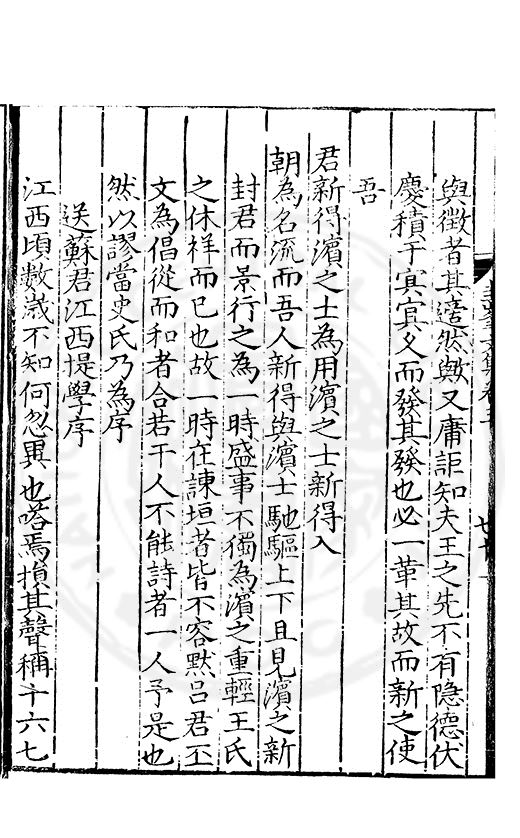 與徵者其造然歟又庸詎知夫王之先不有隐德伏
慶積于㝠㝠久而發其發也必一革其故而新之使
吾
君新得濱之士為用濱之士新得入
朝為名流而吾人新得與濱士馳驅上下且見濱之新
封君而景行之為一時盛事不獨為濱之重輕王氏
之休祥而已也故一時在諌垣者皆不容默吕君丕
文為倡從而和者合若干人不能詩者一人予是也
然以謬當史氏乃為序
送蘇君江西提學序
江西頃數歲不知何忽異也嗒焉損其聲稱十六七